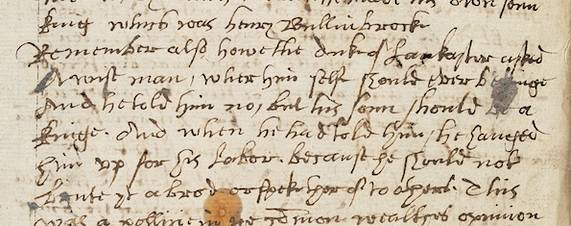 his own sonn
king which was henry Bullinbrocke
Remember also howe the duke of Lankaster asked
A wise man, wher him self should ever be kinge
And he told him no, but his sonn should be a
kinge. And when he had told him, he hanged
him up for his labor. because he should not
brute it abrod or speke therof to others. This
was a in the comon wealthes opinion